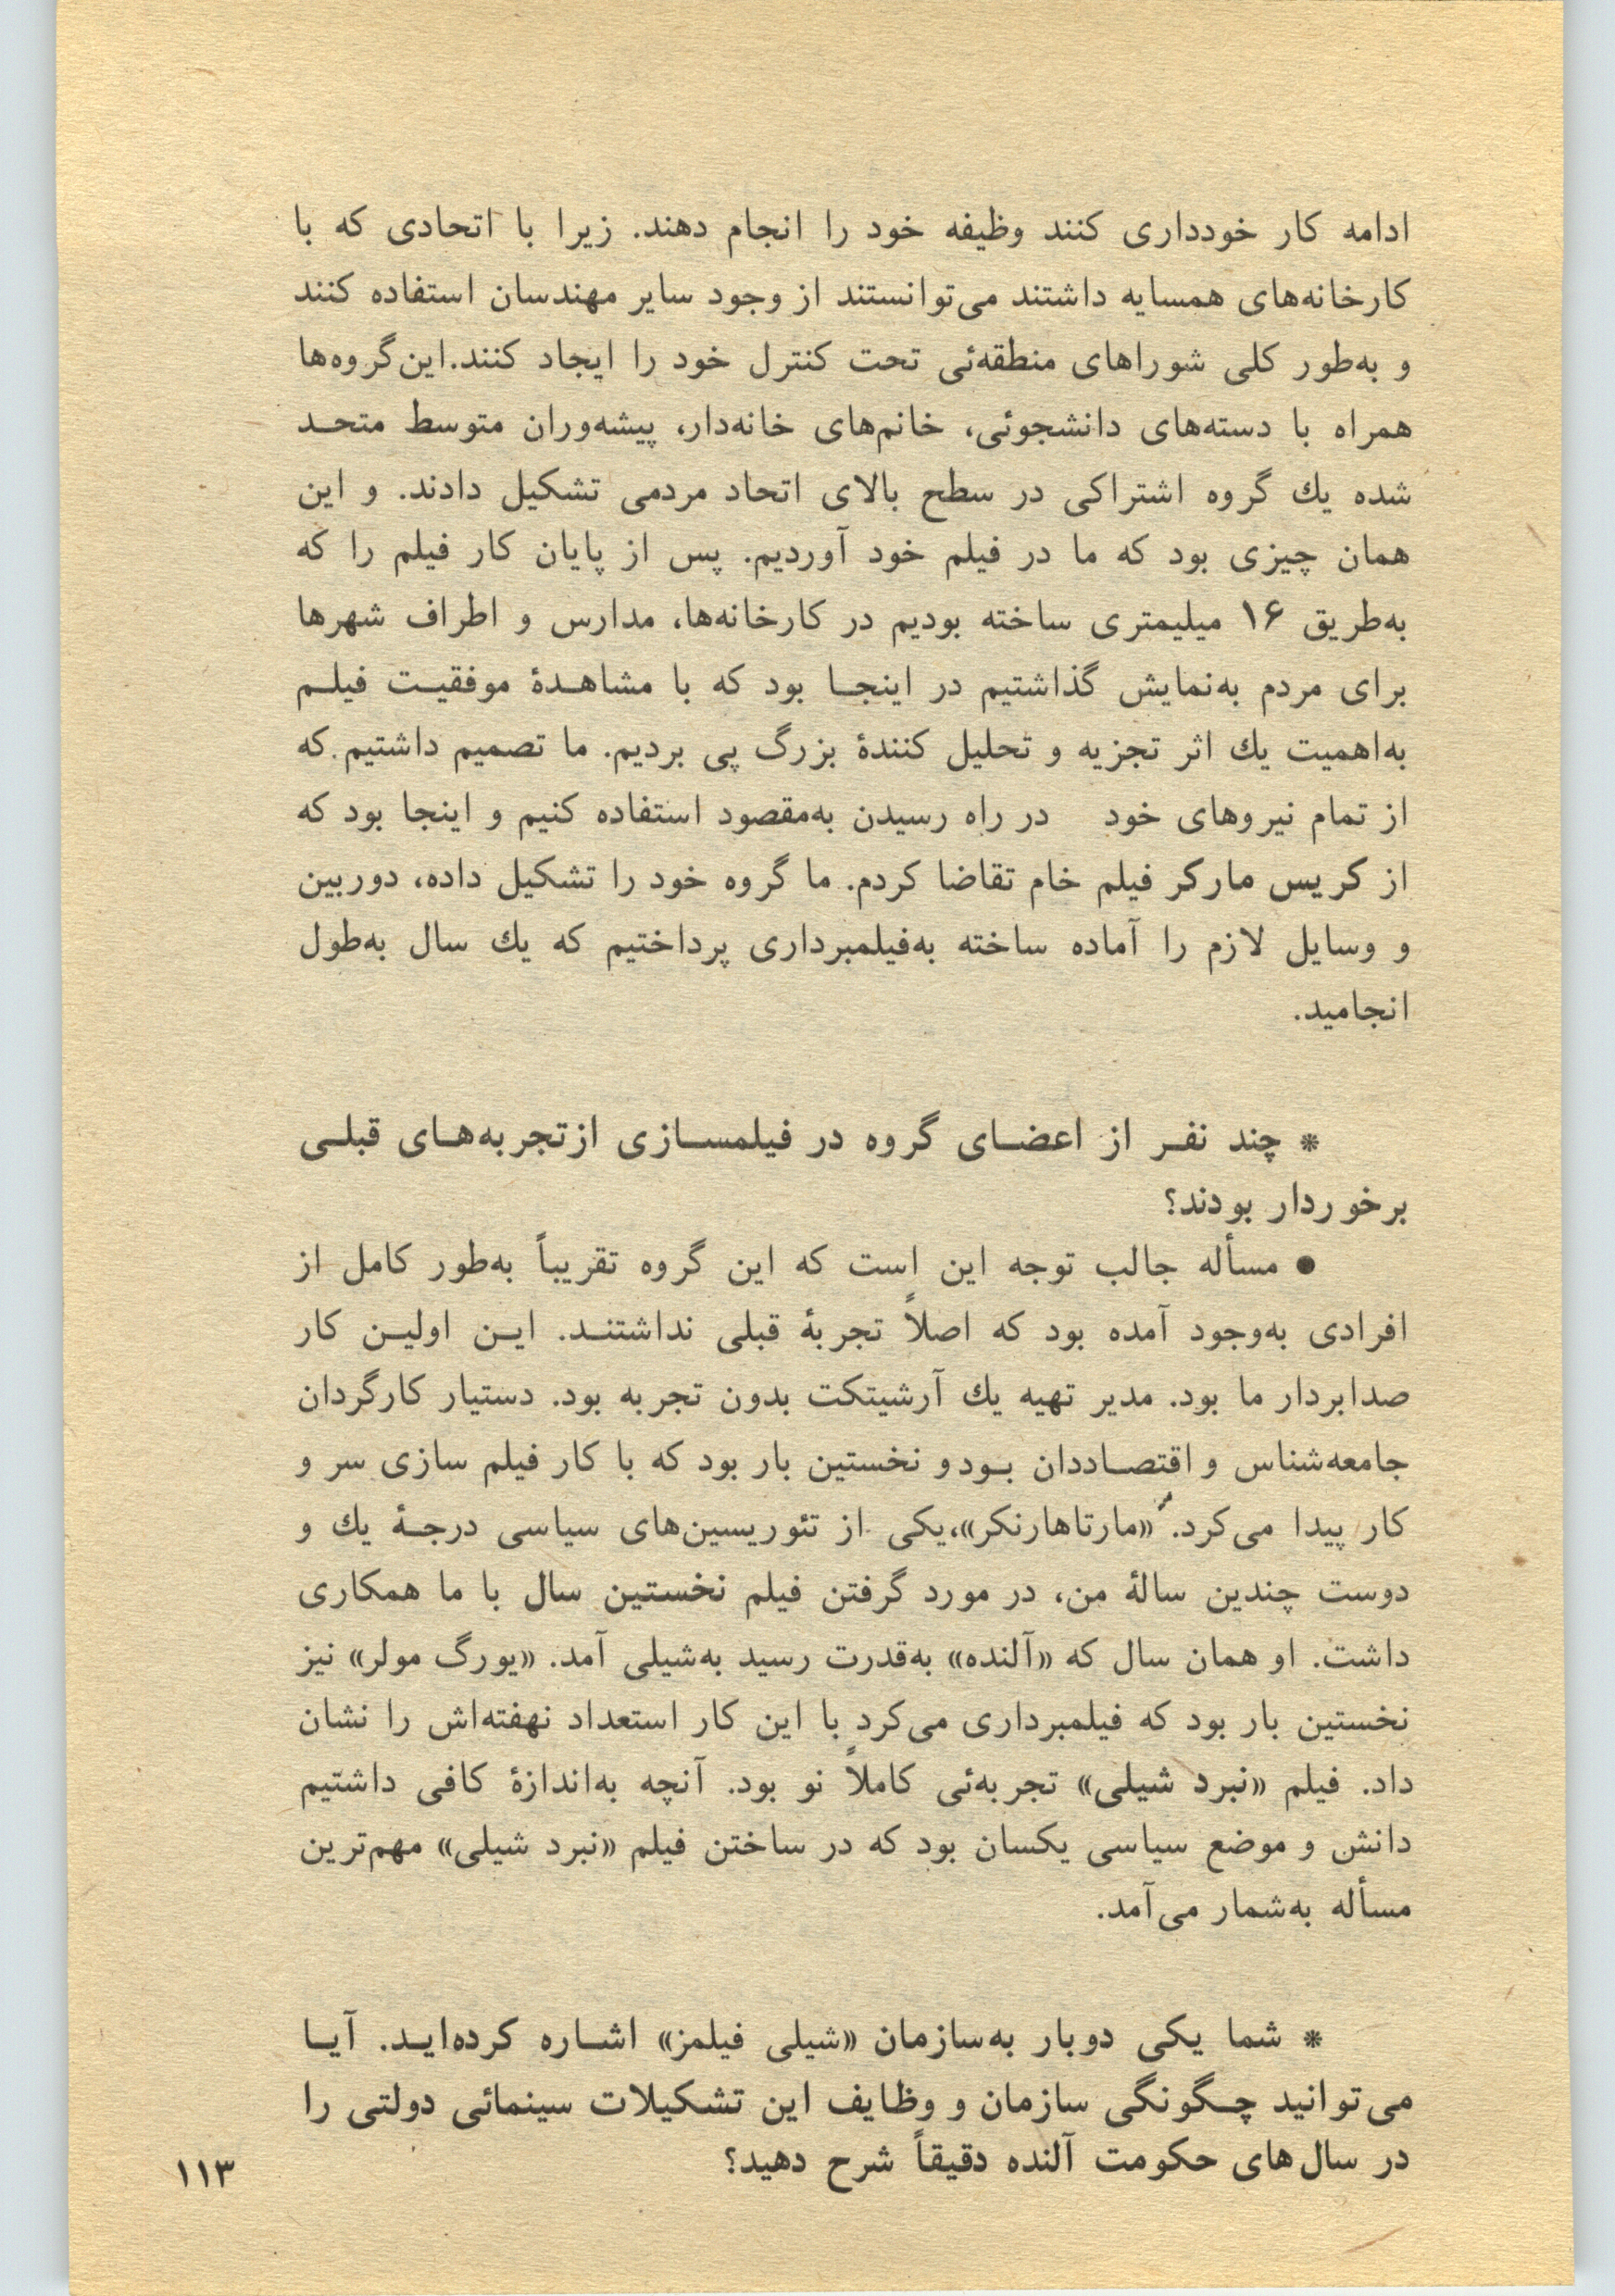 ادامه کار خودداری کنند وظیفه خود را انجام دهند. زیرا با اتحادی که با
کارخانه‌های همسایه داشتند می‌توانستند از وجود سایر مهندسان استفاده کنند
و به‌طور کلی شوراهای منطقه‌ئی تحت کنترل خود را ایجاد کنند.این‌گروه‌ها
همراه با دسته‌های دانشجوئی، خانم‌های خانه‌دار، پیشه‌وران متوسط متحـد
شده یك گروه اشتراکی در سطح بالای اتحاد مردمی تشکیل دادند. و این
همان چیزی بود که ما در فیلم خود آوردیم. پس از پایان کار فیلم را که
به‌طریق ۱۶ میلیمتری ساخته بودیم در کارخانه‌ها، مدارس و اطراف شهرها
برای مردم به‌نمایش گذاشتیم در اینجـا بود که با مشاهـدۀ موفقیـت فیلـم
به‌اهمیت یك اثر تجزیه و تحلیل کنندۀ بزرگ پی بردیم. ما تصمیم داشتیم که
از تمام نیروهای خود در راه رسیدن به‌مقصود استفاده کنیم و اینجا بود که
از کریس مارکر فیلم خام تقاضا کردم. ما گروه خود را تشکیل داده، دوربین
و وسایل لازم را آماده ساخته به‌فیلمبرداری پرداختیم که یك سال به‌طول
انجامید.
* چند نفـر از اعضـای گروه در فیلمسـازی ازتجربه‌هـای قبلـی
برخوردار بودند؟
● مسأله جالب توجه این است که این گروه تقریباً به‌طور کامل از
افرادی به‌وجود آمده بود که اصلاً تجربۀ قبلی نداشتنـد. ایـن اولیـن کار
صدابردار ما بود. مدیر تهیه یك آرشیتکت بدون تجربه بود. دستیار کارگردان
جامعه‌شناس و اقتصـاددان بـود و نخستین بار بود که با کار فیلم سازی سر و
کار پیدا می‌کرد. «مارتاهارنکر»،یکی از تئوریسین‌های سیاسی درجـۀ یك و
دوست چندین سالۀ من، در مورد گرفتن فیلم نخستین سال با ما همکاری
داشت. او همان سال که «آلنده» به‌قدرت رسید به‌شیلی آمد. «یورگ مولر» نیز
نخستین بار بود که فیلمبرداری می‌کرد با این کار استعداد نهفته‌اش را نشان
داد. فیلم «نبرد شیلی» تجربه‌ئی کاملاً نو بود. آنچه به‌اندازۀ کافی داشتیم
دانش و موضع سیاسی یکسان بود که در ساختن فیلم «نبرد شیلی» مهم‌ترین
مسأله به‌شمار می‌آمد.
* شما یکی دوبار به‌سازمان «شیلی فیلمز» اشـاره کرده‌ایـد. آیـا
می‌توانید چـگونگی سازمان و وظایف این تشکیلات سینمائی دولتی را
در سال‌های حکومت آلنده دقیقاً شرح دهید؟
۱۱۳